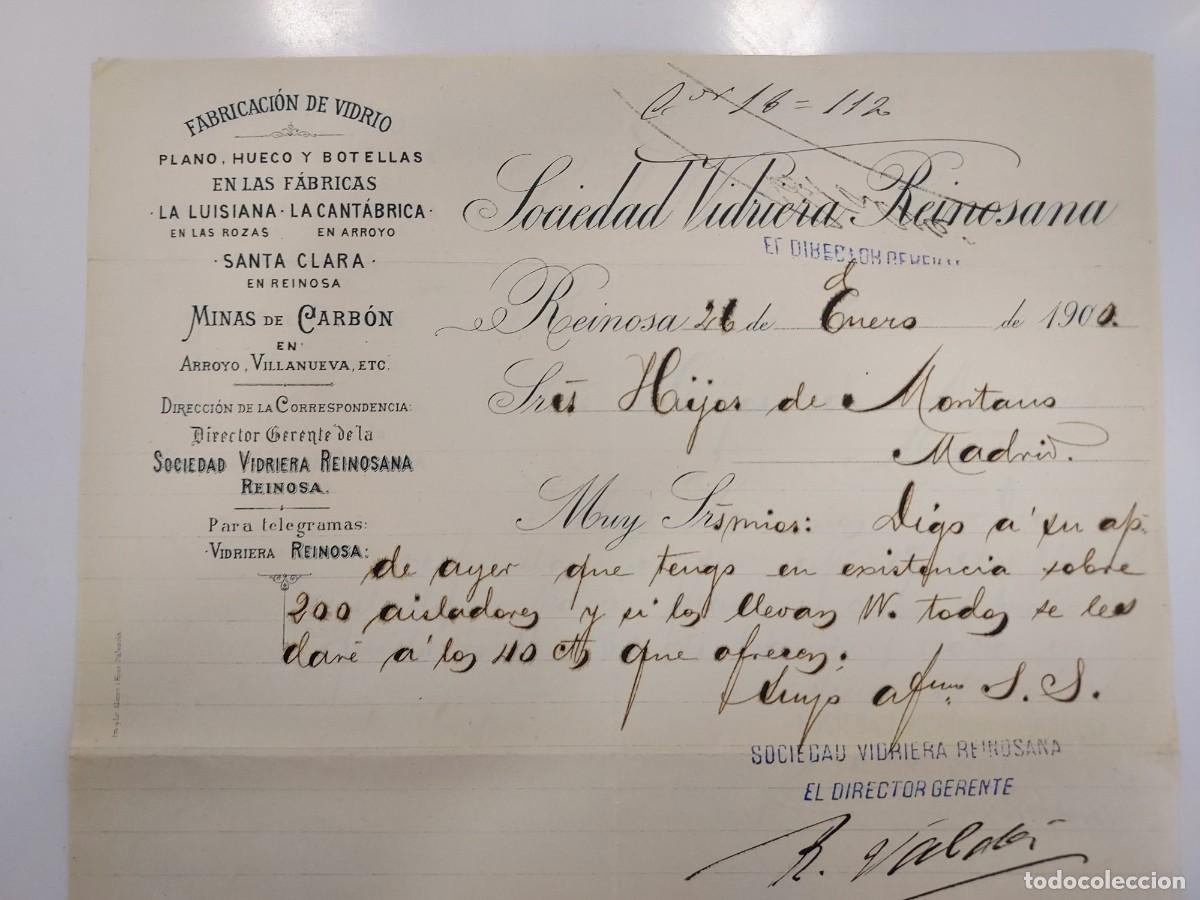 FABRICACIÓN DE VIDRIO
PLANO, HUECO Y BOTELLAS
EN LAS FÁBRICAS
· LA LUISIANA · LA CANTÁBRICA ·
EN LAS ROZAS EN ARROYO
· SANTA CLARA ·
EN REINOSA
MINAS DE CARBÓN
EN
ARROYO, VILLANUEVA, ETC.
DIRECCIÓN DE LA CORRESPONDENCIA:
Director Gerente de la
SOCIEDAD VIDRIERA REINOSANA
REINOSA.
Para telegramas:
· VIDRIERA REINOSA:
16 = 112
Sociedad Vidriera Reinosana
EL DIRECTOR GERENTE
Reinosa 26 de Enero de 1900.
Sres Hijos de Montano
Madrid.
Muy Srs mios: Digo a su ap.
de ayer que tengo en existencia sobre
200 aisladores y si los llevan W. todos se les
daré á los 40 cts que ofrecen.
Suyo afmo S. S.
SOCIEDAD VIDRIERA REINOSANA
EL DIRECTOR GERENTE
R. Valdés
todocoleccion